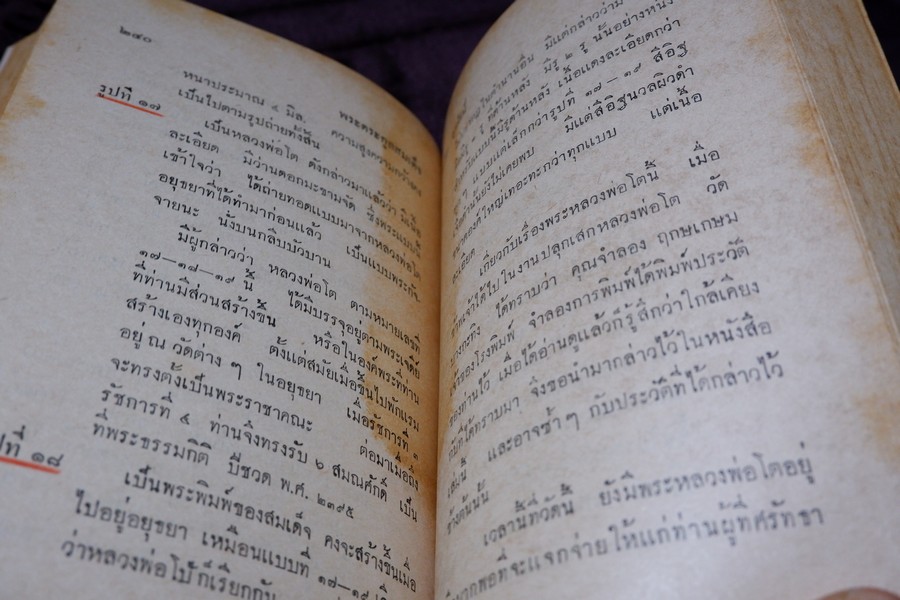 ๒๔๐
หนาประมาณ ๔ มิล. ความสูงความกว้างคง
รูปที่ ๑๗
เป็นไปตามรูปถ่ายทั้งสิ้น
เป็นหลวงพ่อโต ดังกล่าวมาแล้วว่า มีเนื้อ
ละเอียด มีว่านดอกมะขามจัด ซึ่งพระแบบนี้
เข้าใจว่า ได้ถ่ายทอดแบบมาจากหลวงพ่อโต
อยุธยาที่ได้ทำมาก่อนแล้ว เป็นแบบพระกัจ-
จายนะ นั่งบนกลีบบัวบาน
มีผู้กล่าวว่า หลวงพ่อโต ตามหมายเลขที่
๑๗—๑๘—๑๙ นี้ ได้มีบรรจุอยู่ตามพระเจดีย์
ที่ท่านมีส่วนสร้างขึ้น หรือในองค์พระที่ท่าน
สร้างเองทุกองค์ ตั้งแต่สมัยเมื่อขึ้นไปพักแรม
อยู่ ณ วัดต่าง ๆ ในอยุธยา เมื่อรัชการที่ ๓
จะทรงตั้งเป็นพระราชาคณะ ต่อมาเมื่อถึง
รัชการที่ ๔ ท่านจึงทรงรับ ๖ สมณศักดิ์ เป็น
ที่พระธรรมกิติ ปีชวด พ.ศ. ๒๓๙๕
ปที่ ๑๘
เป็นพระพิมพ์ของสมเด็จ คงจะสร้างขึ้นเมื่อ
ไปอยู่อยุธยา เหมือนแบบที่ ๑๗—๑๙
ว่าหลวงพ่อโป้ ก็เรียกกัน
ในตำนานอื่น มีแต่กล่าวว่าม
รู ที่ด้านหลัง มีรู ๒ รู นั้นอย่างหนึ่ง
แบบนี้มีรูด้านหลัง เนื้อแดงละเอียดกว่า
แบบแต่เล็กกว่ารูปที่ ๑๗—๑๙ สีอิฐ
ด้านนี้ยังไม่เคยพบ มีแต่สีอิฐนวลผิวดำ
องค์ใหญ่เทอะทะกว่าทุกแบบ แต่เนื้อ
ละเอียด
เกี่ยวกับเรื่องพระหลวงพ่อโตนี้ เมื่อ
ข้าพเจ้าได้ไปในงานปลุกเสกหลวงพ่อโต วัด
บางกะทิง ได้ทราบว่า คุณจำลอง ฤกษเกษม
เจ้าของโรงพิมพ์ จำลองการพิมพ์ได้พิมพ์ประวัติ
ของท่านไว้ เมื่อได้อ่านดูแล้วก็รู้สึกว่าใกล้เคียง
กับที่ได้ทราบมา จึงขอนำมากล่าวไว้ในหนังสือ
เล่มนี้ และอาจซ้ำ ๆ กับประวัติที่ได้กล่าวไว้
ข้างต้นนั้น
เวลานี้ที่วัดนี้ ยังมีพระหลวงพ่อโตอยู่
มากพอที่จะแจกจ่ายให้แก่ท่านผู้ที่ศรัทธา